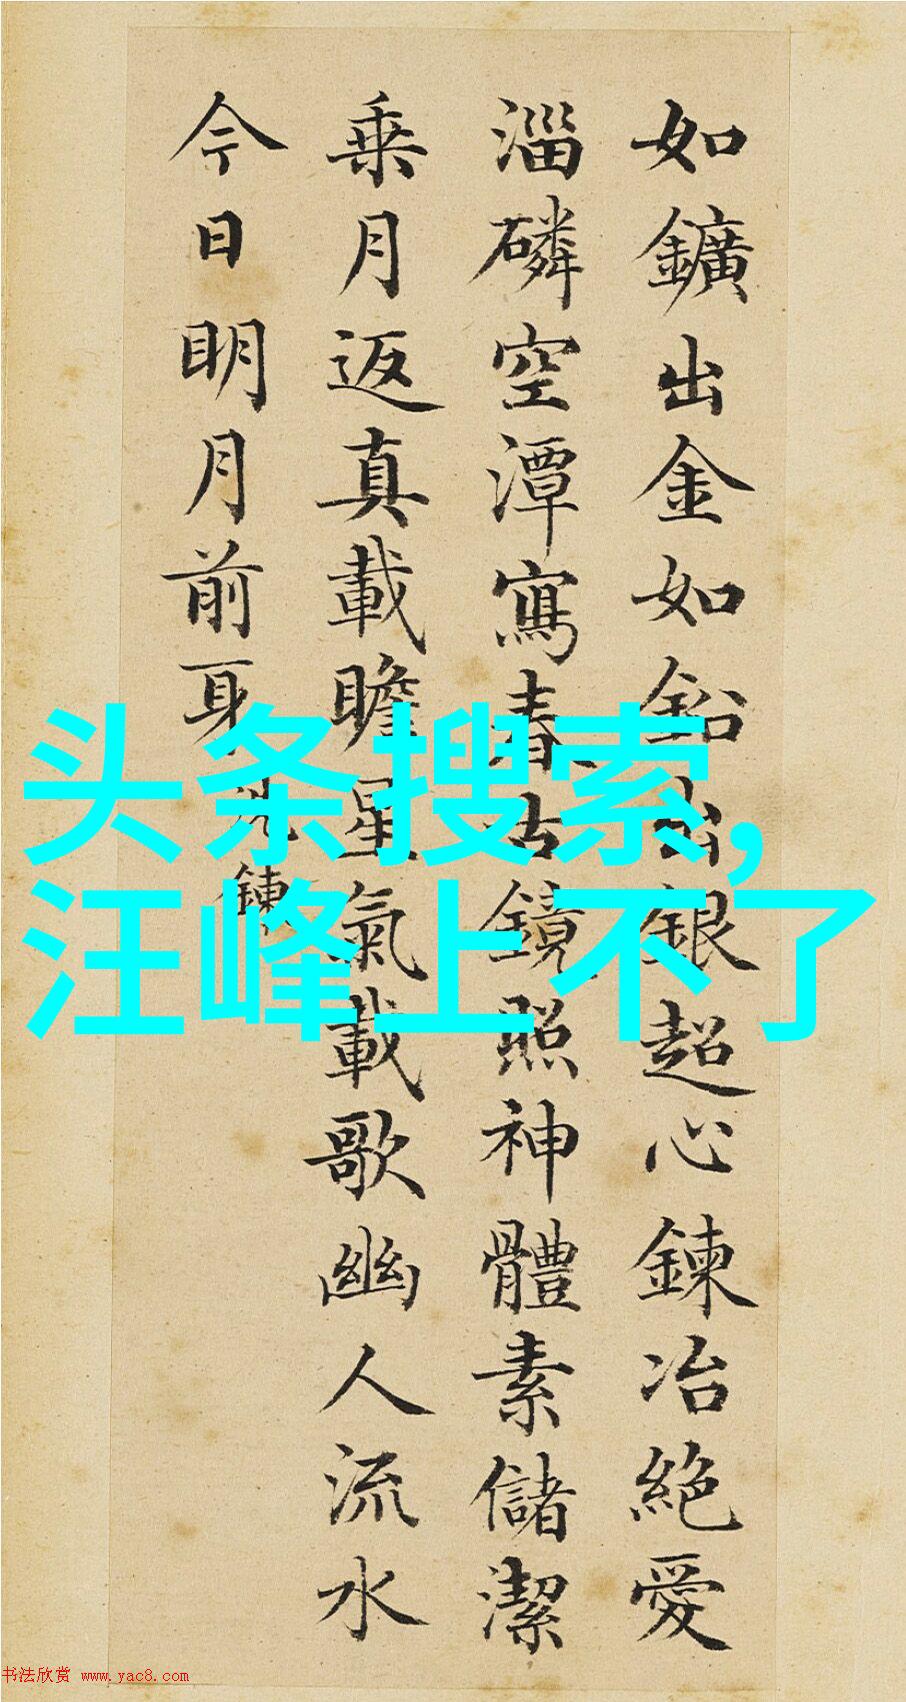 如鑛出金如鉛出銀超心鍊冶絕愛
淄磷空潭寫春古鏡照神體素儲潔
乗月返真載瞻星氣載歌幽人流水
今日明月前身
洗鍊
头条搜索，
汪峰上不了
书法欣赏 www.yac8.com